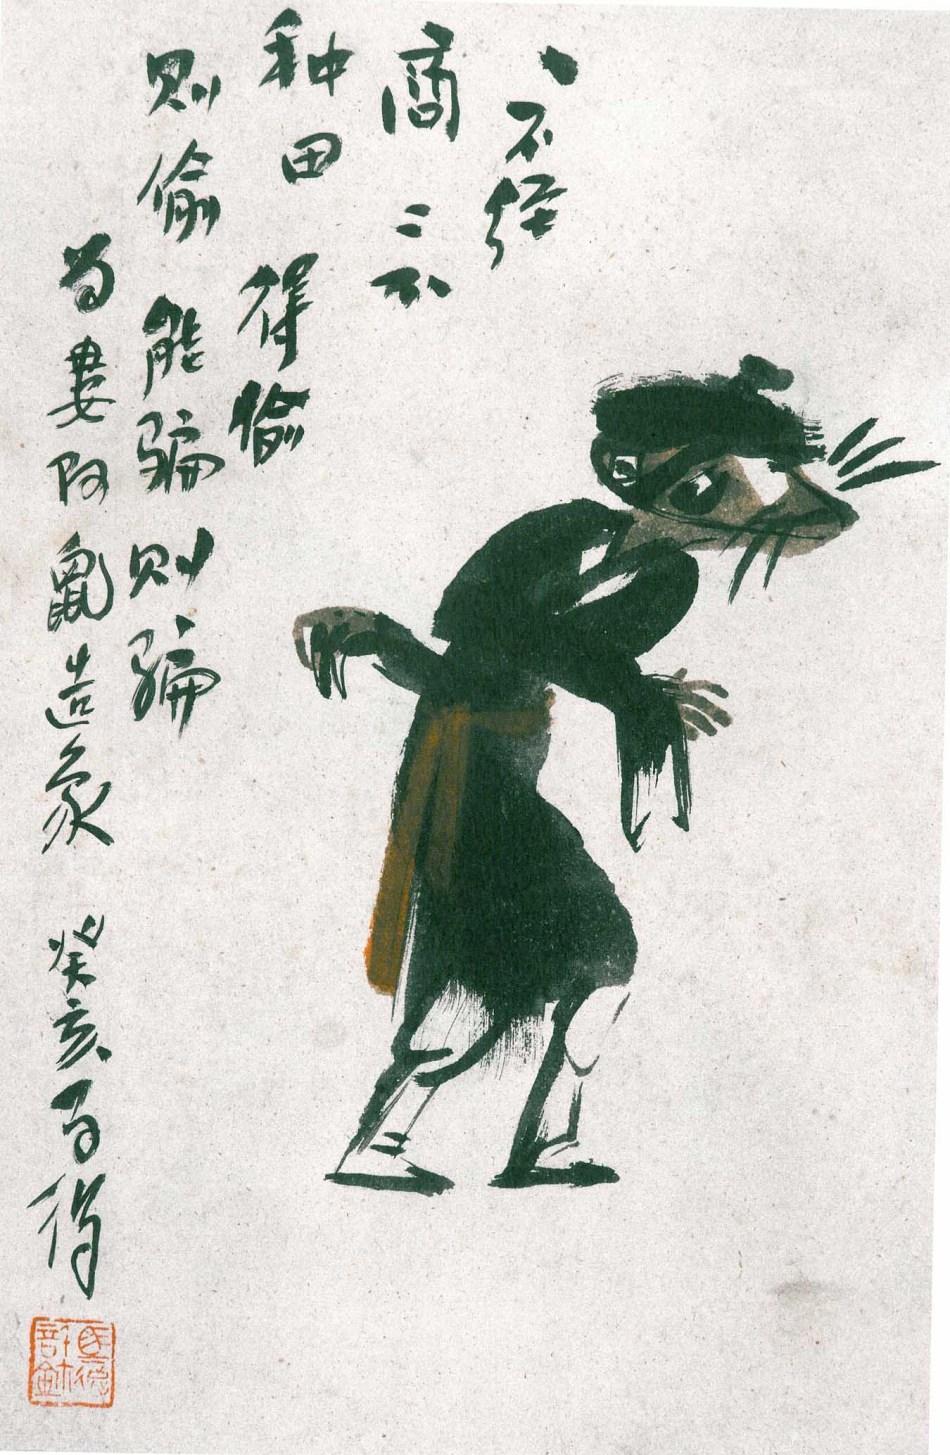 一不经
商 二不
种田 得偷
则偷 能骗则骗
为婁阿鼠造象 癸亥马得